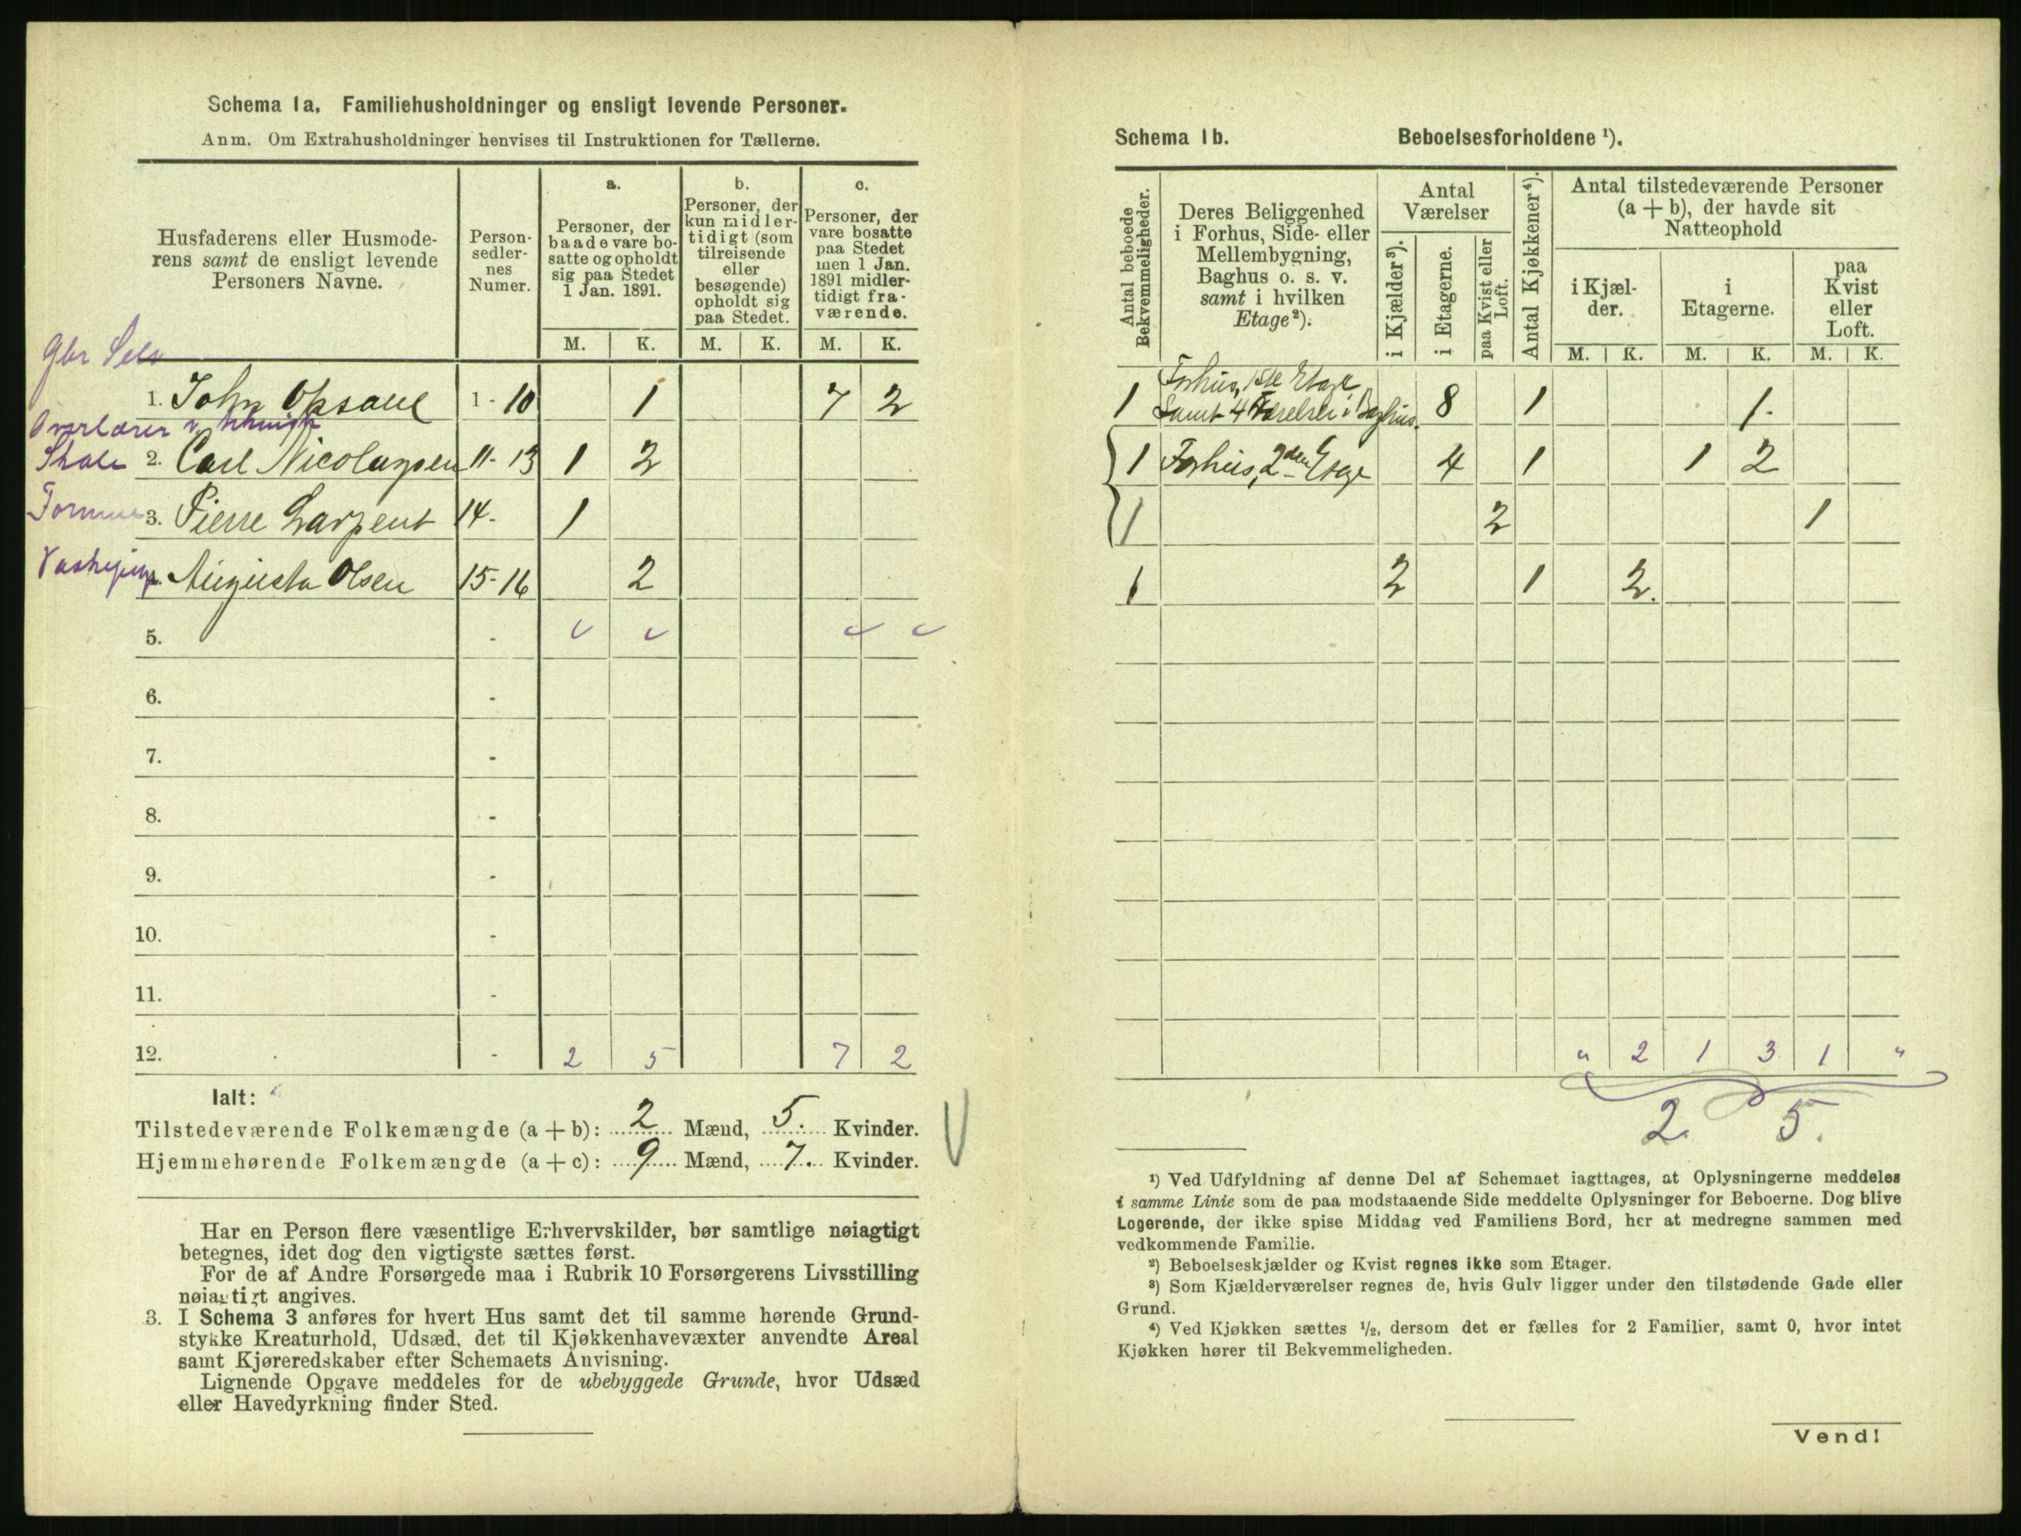 Schema 1a. Familiehusholdninger og ensligt levende Personer.
Anm. Om Extrahusholdninger henvises til Instruktionen for Tællerne.
Husfaderens eller Husmode-
rens samt de ensligt levende
Personers Navne.
Person-
sedler-
nes
Numer.
a.
Personer, der
baade vare bo-
satte og opholdt
sig paa Stedet
1 Jan. 1891.
b.
Personer, der
kun midler-
tidigt (som
tilreisende
eller
besøgende)
opholdt sig
paa Stedet.
c.
Personer, der
vare bosatte
paa Stedet
men 1 Jan.
1891 midler-
tidigt fra-
værende.
M. K. M. K. M. K.
1. John Opsahl 1 - 10 1 7 2
Overlærer v.
Skole 2. Carl Nicolaysen 11-13 1 2
3. Pierre Larpent 14- 1
Augusta Olsen 15-16 2
5. -
6. -
7. -
8. -
9. -
10. -
11. -
12. - 2 5 7 2
Ialt:
Tilstedeværende Folkemængde (a + b): 2 Mænd, 5. Kvinder.
Hjemmehørende Folkemængde (a + c): 9 Mænd, 7. Kvinder.
Har en Person flere væsentlige Erhvervskilder, bør samtlige nøiagtigt
betegnes, idet dog den vigtigste sættes først.
For de af Andre Forsørgede maa i Rubrik 10 Forsørgerens Livsstilling
nøiagtigt angives.
3. I Schema 3 anføres for hvert Hus samt det til samme hørende Grund-
stykke Kreaturhold, Udsæd, det til Kjøkkenhavevæxter anvendte Areal
samt Kjøreredskaber efter Schemaets Anvisning.
Lignende Opgave meddeles for de ubebyggede Grunde, hvor Udsæd
eller Havedyrkning finder Sted.
Schema 1b. Beboelsesforholdene ¹).
Antal beboede
Bekvemmeligheder.
Deres Beliggenhed
i Forhus, Side- eller
Mellembygning,
Baghus o. s. v.
samt i hvilken
Etage²).
Antal
Værelser
i Kjælder³).
i Etagerne.
paa Kvist eller
Loft.
Antal Kjøkkener⁴).
Antal tilstedeværende Personer
(a + b), der havde sit
Natteophold
i Kjæl-
der.
i
Etagerne.
paa
Kvist
eller
Loft.
M. K. M. K. M. K.
Forhus, 1ste Etage
1 Samt 4 Værelser i Baghus. 8 1 1.
1 Forhus, 2den Etage 4 1 1 2
1 2 1
1 2 1 2.
" 2 1 3 1 "
2. 5.
¹) Ved Udfyldning af denne Del af Schemaet iagttages, at Oplysningerne meddeles
i samme Linie som de paa modstaaende Side meddelte Oplysninger for Beboerne. Dog blive
Logerende, der ikke spise Middag ved Familiens Bord, her at medregne sammen med
vedkommende Familie.
²) Beboelseskjælder og Kvist regnes ikke som Etager.
³) Som Kjælderværelser regnes de, hvis Gulv ligger under den tilstødende Gade eller
Grund.
⁴) Ved Kjøkken sættes ½, dersom det er fælles for 2 Familier, samt 0, hvor intet
Kjøkken hører til Bekvemmeligheden.
Vend!